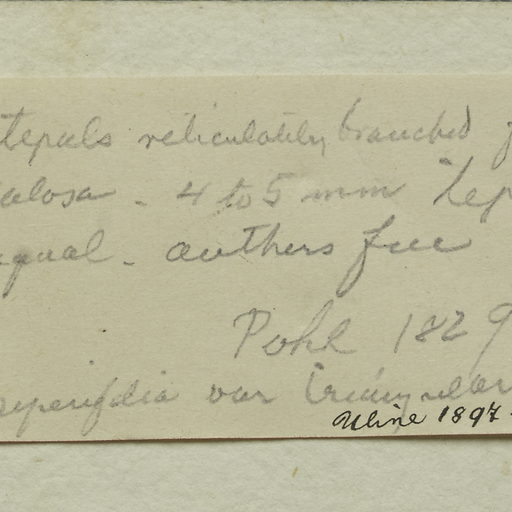 tepals reticulately branched
alosa - 4 to 5 mm tep
qual - anthers free
Pohl 1829
var
Uline 1897.